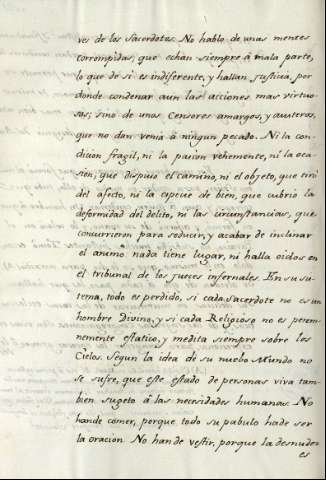 ves de los Sacerdotes. No hablo de unas mentes
corrompidas, que echan siempre á mala parte,
lo que de si es indiferente, y hallan Justicia, por
donde condenar aun las acciones mas virtuo-
sas; sino de unos Censores amargos, y austeros,
que no dan venia à ningun pecado. Ni la con-
dicion fragil, ni la pasion vehemente, ni la oca-
sion, que dispuso el camino, ni el objeto, que tiró
del afecto, ni la especie de bien, que cubrió la
deformidad del delito, ni las circunstancias, que
concurrieron para seducir, y acabar de inclinar
el animo nada tiene lugar, ni halla oidos en
el tribunal de los Jueces infernales. En su sis-
tema, todo es perdido, si cada Sacerdote no es un
hombre Divino, y si cada Religioso no es peren-
nemente estatico, y medita siempre sobre los
Cielos. Segun la idea de su nuebo Mundo no
se sufre, que este estado de personas viva tam-
bien sugeto à las necesidades humanas. No
han de comer, porque todo su pabulo ha de ser
la oracion. No han de vestir, porque la desnudez
es